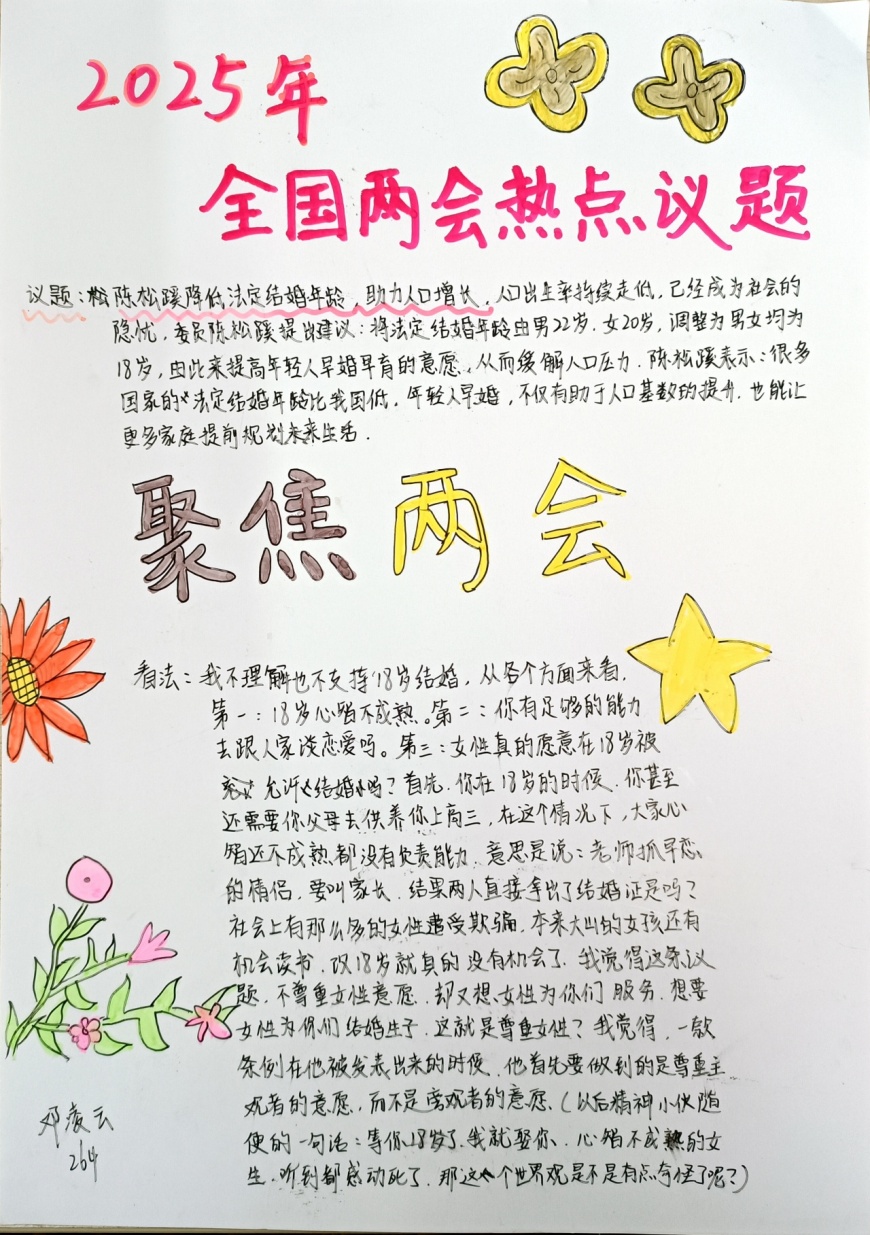 2025年
全国两会热点议题
议题:松陈松蹊降低法定结婚年龄,助力人口增长.人口出生率持续走低,已经成为社会的
隐忧,委员陈松蹊提出建议:将法定结婚年龄由男22岁.女20岁,调整为男女均为
18岁,由此来提高年轻人早婚早育的意愿.从而缓解人口压力.陈松蹊表示:很多
国家的法定结婚年龄比我国低,年轻人早婚,不仅有助于人口基数的提升.也能让
更多家庭提前规划未来生活.
聚焦两会
看法:我不理解也不支持18岁结婚,从各个方面来看.
第一:18岁心智不成熟。第二:你有足够的能力
去跟人家谈恋爱吗。第三:女性真的愿意在18岁被
允许结婚吗?首先.你在18岁的时候.你甚至
还需要你父母去供养你上高三,在这个情况下,大家心
智还不成熟都没有负责能力.意思是说:老师抓早恋
的情侣,要叫家长.结果两人直接拿出了结婚证是吗?
社会上有那么多的女性遭受欺骗,本来大山的女孩还有
机会读书.改18岁就真的没有机会了.我觉得这条议
题,不尊重女性意愿.却又想女性为你们服务.想要
女性为你们结婚生子.这就是尊重女性?我觉得,一款
条例在他被发表出来的时候.他首先要做到的是尊重主
观者的意愿,而不是旁观者的意愿.(以后精神小伙随
便的一句话:等你18岁了.我就娶你.心智不成熟的女
生.听到都感动死了.那这个世界观是不是有点奇怪了呢?)
邓凌云
264